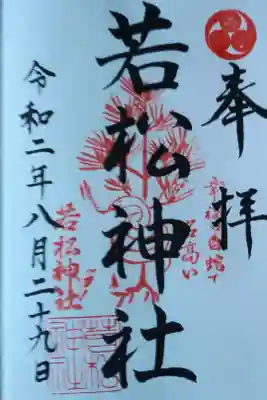 奉拝
若松神社
令和二年八月二十九日
若松神社